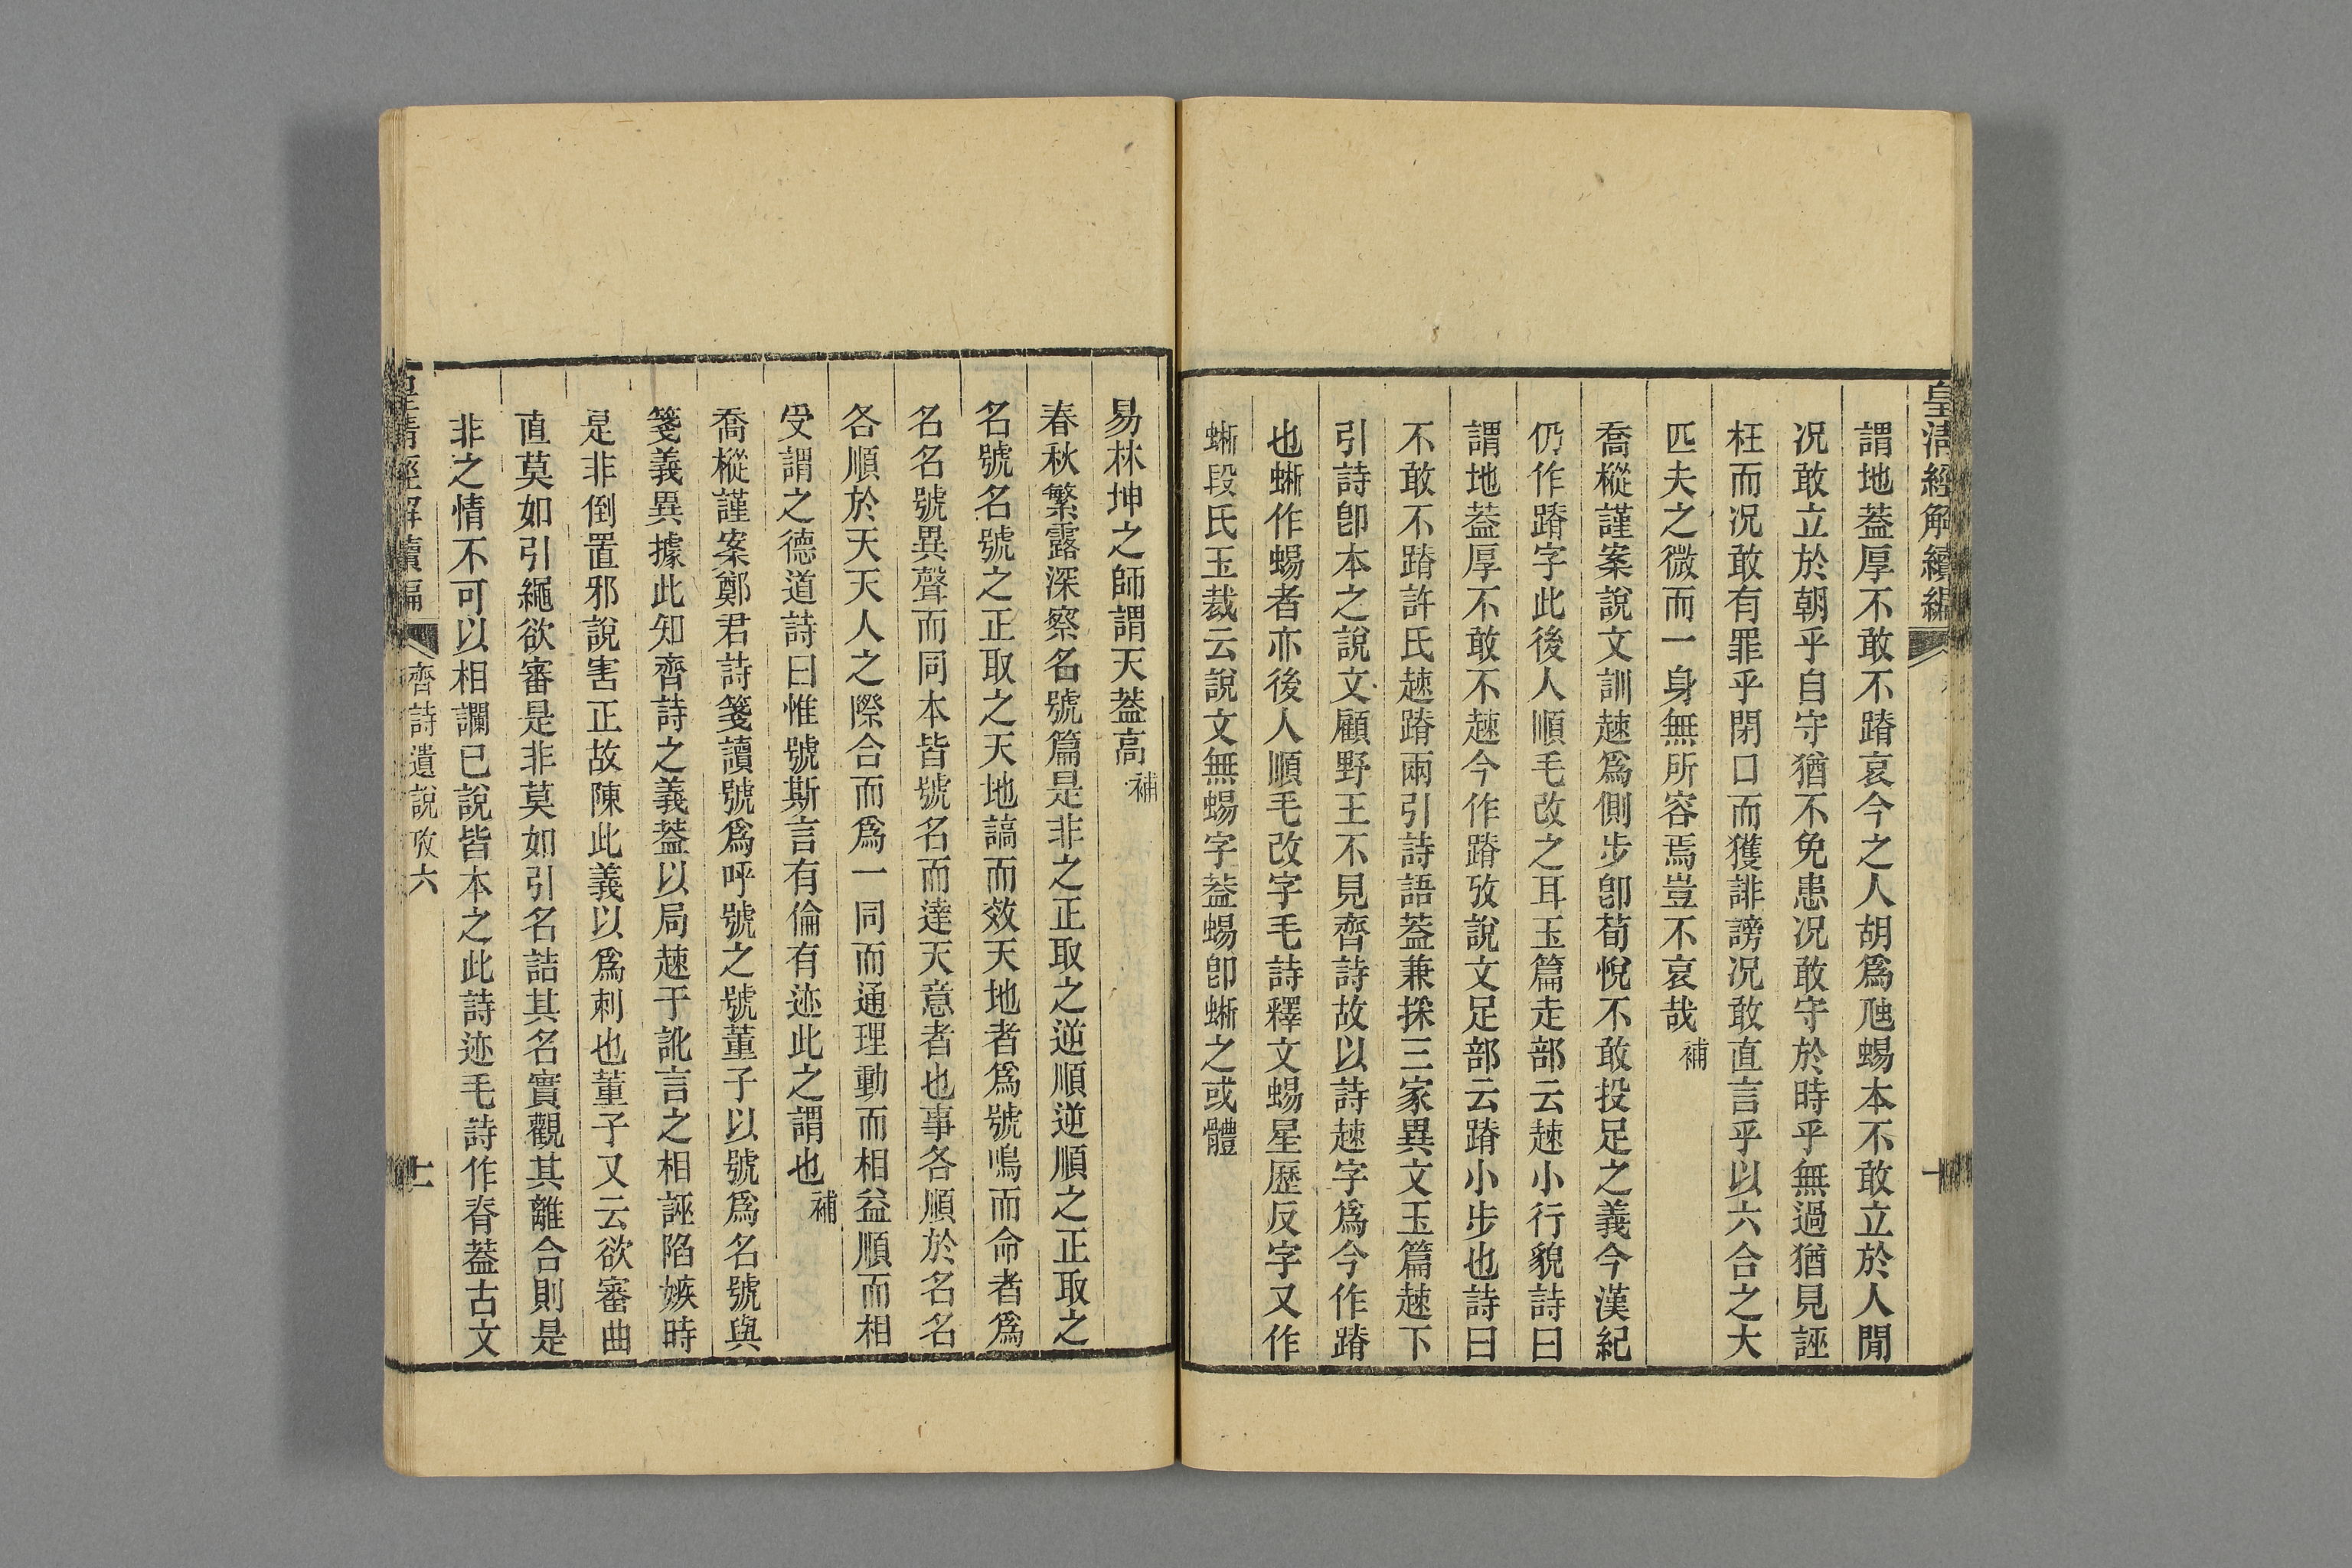 皇清經解續編
十
謂地葢厚不敢不蹐哀今之人胡爲虺蜴本不敢立於人閒
况敢立於朝乎自守猶不免患况敢守於時乎無過猶見誣
枉而况敢有罪乎閉口而獲誹謗况敢直言乎以六合之大
匹夫之微而一身無所容焉豈不哀哉補
喬樅謹案說文訓趚爲側步卽荀悅不敢投足之義今漢紀
仍作蹐字此後人順毛改之耳玉篇走部云趚小行貌詩曰
謂地葢厚不敢不趚今作蹐攷說文足部云蹐小步也詩曰
不敢不蹐許氏趚蹐兩引詩語葢兼採三家異文玉篇趚下
引詩卽本之說文顧野王不見齊詩故以詩趚字爲今作蹐
也蜥作蜴者亦後人順毛改字毛詩釋文蜴星歷反字又作
蜥段氏玉裁云說文無蜴字葢蜴卽蜥之或體
易林坤之師謂天葢高補
春秋繁露深察名號篇是非之正取之逆順逆順之正取之
名號名號之正取之天地天地者爲號鳴而命者爲
名名號異聲而同本皆號名而達天意者也事各順於名名
各順於天天人之際合而爲一同而通理動而相益順而相
受謂之德道詩曰惟號斯言有倫有迹此之謂也補
喬樅謹案鄭君詩箋讀號爲呼號之號董子以號爲名號與
箋義異據此知齊詩之義葢以局趚于訛言之相誣陷嫉時
是非倒置邪說害正故陳此義以爲刺也董子又云欲審曲
直莫如引繩欲審是非莫如引名詰其名實觀其離合則是
非之情不可以相讕已說皆本之此詩迹毛詩作脊葢古文
皇清經解續編
齊詩遺說攷六
十一